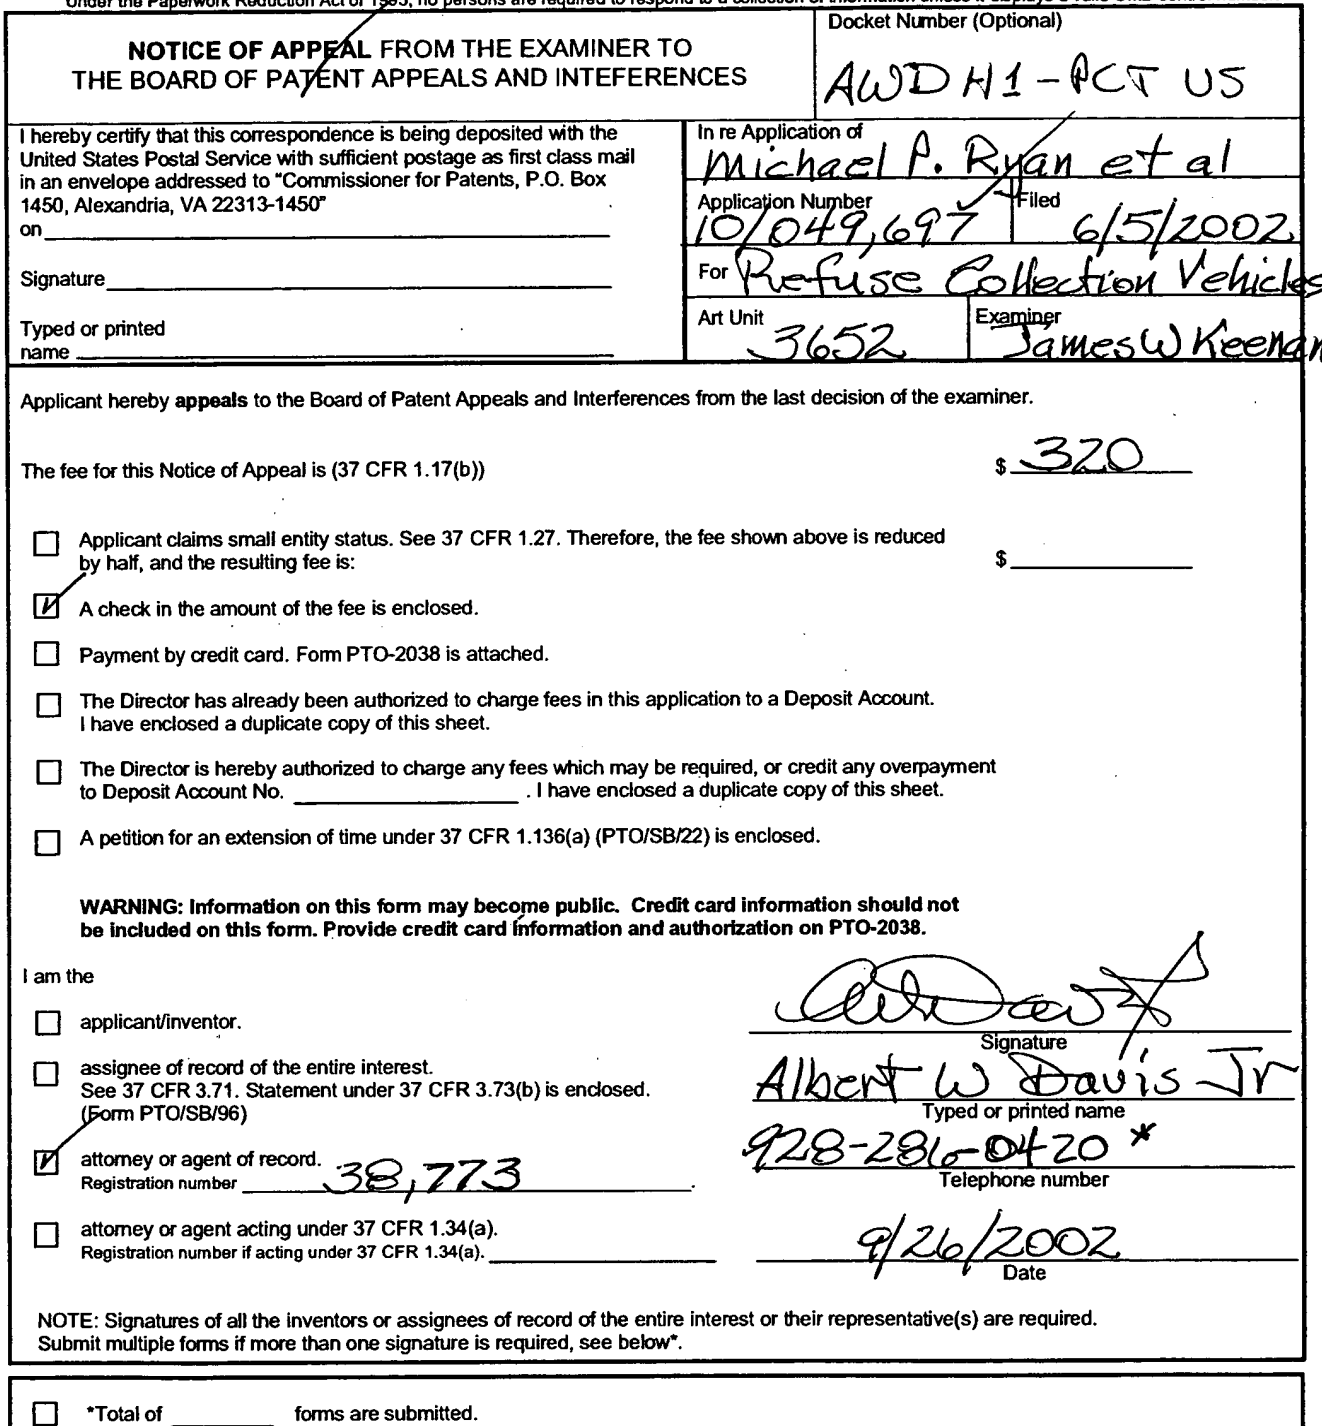 Under the Paperwork Reduction Act of 1995, no persons are required to respond to a collection of information unless it displays a valid OMB
NOTICE OF APPEAL FROM THE EXAMINER TO
THE BOARD OF PATENT APPEALS AND INTEFERENCES
Docket Number (Optional)
AWD H1-PCT US
I hereby certify that this correspondence is being deposited with the
United States Postal Service with sufficient postage as first class mail
in an envelope addressed to "Commissioner for Patents, P.O. Box
1450, Alexandria, VA 22313-1450"
on
Signature
Typed or printed
name
In re Application of
Michael P. Ryan et al
Application Number
10/049,697
Filed
6/5/2002
For Refuse Collection Vehicles
Art Unit
3652
Examiner
James W Keenan
Applicant hereby appeals to the Board of Patent Appeals and Interferences from the last decision of the examiner.
The fee for this Notice of Appeal is (37 CFR 1.17(b))
$ 320
Applicant claims small entity status. See 37 CFR 1.27. Therefore, the fee shown above is reduced
by half, and the resulting fee is:
$
A check in the amount of the fee is enclosed.
Payment by credit card. Form PTO-2038 is attached.
The Director has already been authorized to charge fees in this application to a Deposit Account.
I have enclosed a duplicate copy of this sheet.
The Director is hereby authorized to charge any fees which may be required, or credit any overpayment
to Deposit Account No. . I have enclosed a duplicate copy of this sheet.
A petition for an extension of time under 37 CFR 1.136(a) (PTO/SB/22) is enclosed.
WARNING: Information on this form may become public. Credit card information should not
be included on this form. Provide credit card information and authorization on PTO-2038.
I am the
applicant/inventor.
assignee of record of the entire interest.
See 37 CFR 3.71. Statement under 37 CFR 3.73(b) is enclosed.
(Form PTO/SB/96)
attorney or agent of record.
Registration number 38,773 .
attorney or agent acting under 37 CFR 1.34(a).
Registration number if acting under 37 CFR 1.34(a).
Signature
Albert W Davis Jr
Typed or printed name
928-286-0420 *
Telephone number
9/26/2002
Date
NOTE: Signatures of all the inventors or assignees of record of the entire interest or their representative(s) are required.
Submit multiple forms if more than one signature is required, see below*.
*Total of forms are submitted.